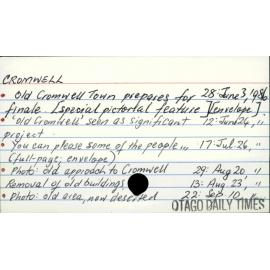 CROMWELL
• Old Cromwell Town prepares for 28: June 3, 1986
finale. [special pictorial feature] [envelope]
• 'Old Cromwell' seen as significant 12: June 24, "
project.
• You can please some of the people... 17: Jul. 26, "
(full-page; envelope)
• Photo: old approach to Cromwell 29: Aug 20, "
Removal of old buildings 13: Aug. 23, "
• Photo: old area, now deserted 22: Sep 10, "
OTAGO DAILY TIMES